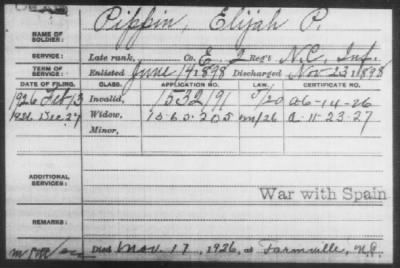 Pippin, Elijah P.
NAME OF SOLDIER:
SERVICE: Late rank, Co. E 2 Reg't N.C. Inf.
TERM OF SERVICE: Enlisted June 14 1898 Discharged Nov 23 1898
DATE OF FILING. CLASS. APPLICATION NO. LAW. CERTIFICATE NO.
1926 Feb 13 Invalid, 1532191 5/20 a 6-14-26
1926 Dec. 27 Widow, 1565.205 m/26 a. 11-23-27
Minor,
ADDITIONAL SERVICES:
War with Spain
REMARKS:
Died Nov. 17, 1926, at Farmville, N.C.